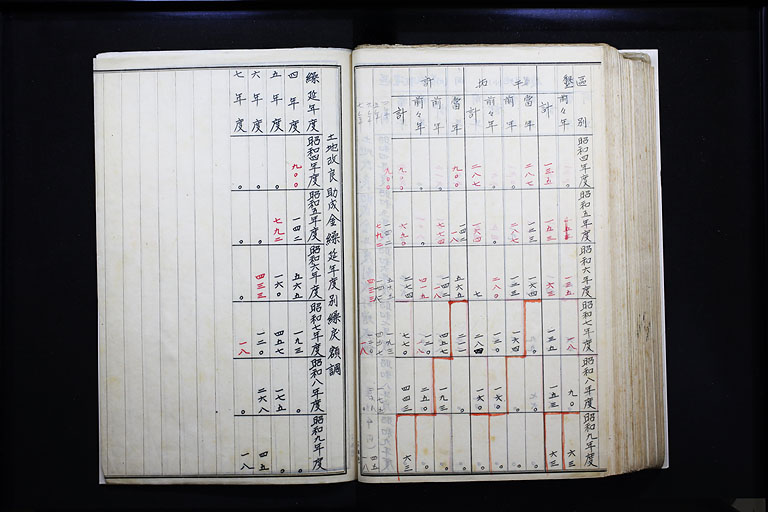 區別 昭和四年度 昭和五年度 昭和六年度 昭和七年度 昭和八年度 昭和九年度
墾 前々年 一三五 一八 九〇 六三
計 一三五 一五三 一六三 一三五 一五三 六三
平 當年 二八七 一二三 一六四 〇 〇
前年 〇 二八七 一二三 一六四 〇 〇
拓 前々年 〇 〇 二八〇 一二〇 一六〇 〇
計 二八七 一六四 七 二八四 一六〇 〇
當年 九〇〇 一四二 一八 五六五 二一一 〇 〇
計 前年 〇 七七四 一八 四五七 一九三 〇
前々年 〇 〇 四一五 一二〇 二五〇 〇
計 九〇〇 二七四 七七〇 四四三 六三
土地改良助成金繰延年度別繰戻額調
繰延年度 昭和四年度 昭和五年度 昭和六年度 昭和七年度 昭和八年度 昭和九年度
四年度 九〇〇 一四二 五六五 一九三 〇 〇
五年度 〇 七九二 一六〇 四五七 一七五 〇
六年度 〇 〇 四三三 一二〇 二六八 四五
七年度 〇 〇 〇 一八 〇 一八